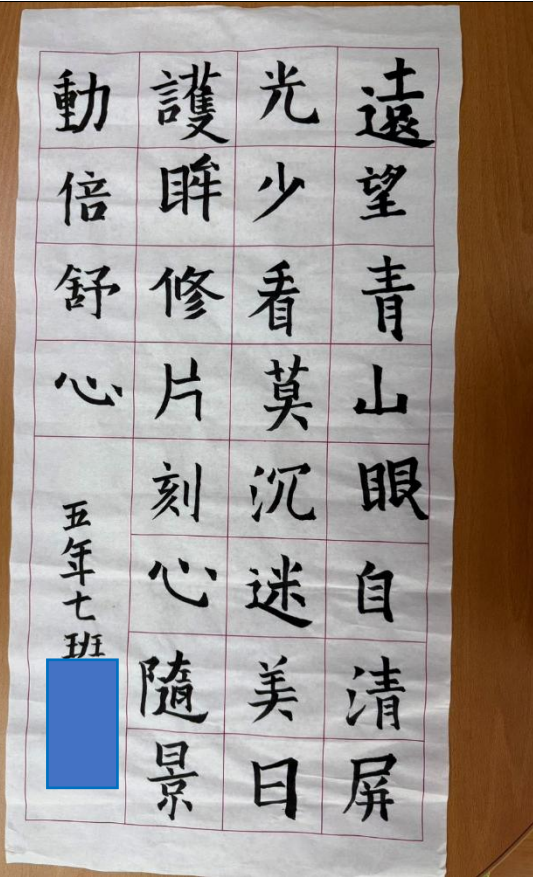 遠望青山眼自清屏
光少看莫沉迷美日
護眸修片刻心隨景
動倍舒心
五年七班